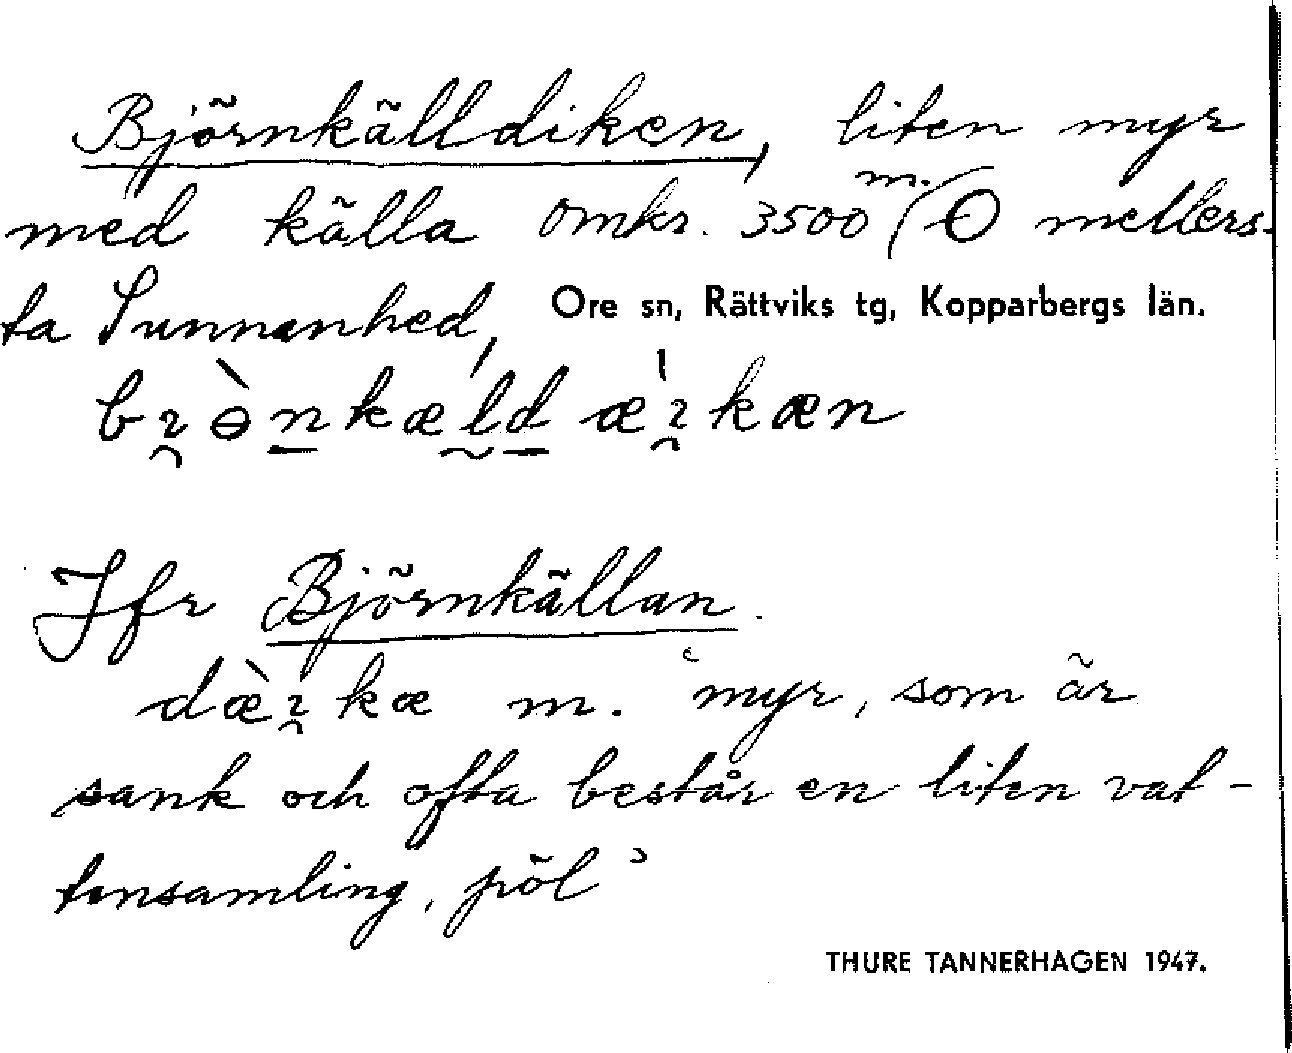 Björnkälldiken, liten myr
med källa omkr. 3500 m. (O mellers-
ta Sunnanhed,
Ore sn, Rättviks tg, Kopparbergs län.
Jfr Björnkällan.
m. 'myr, som är
sank och ofta består en liten vat-
tensamling, pöl'
THURE TANNERHAGEN 1947.